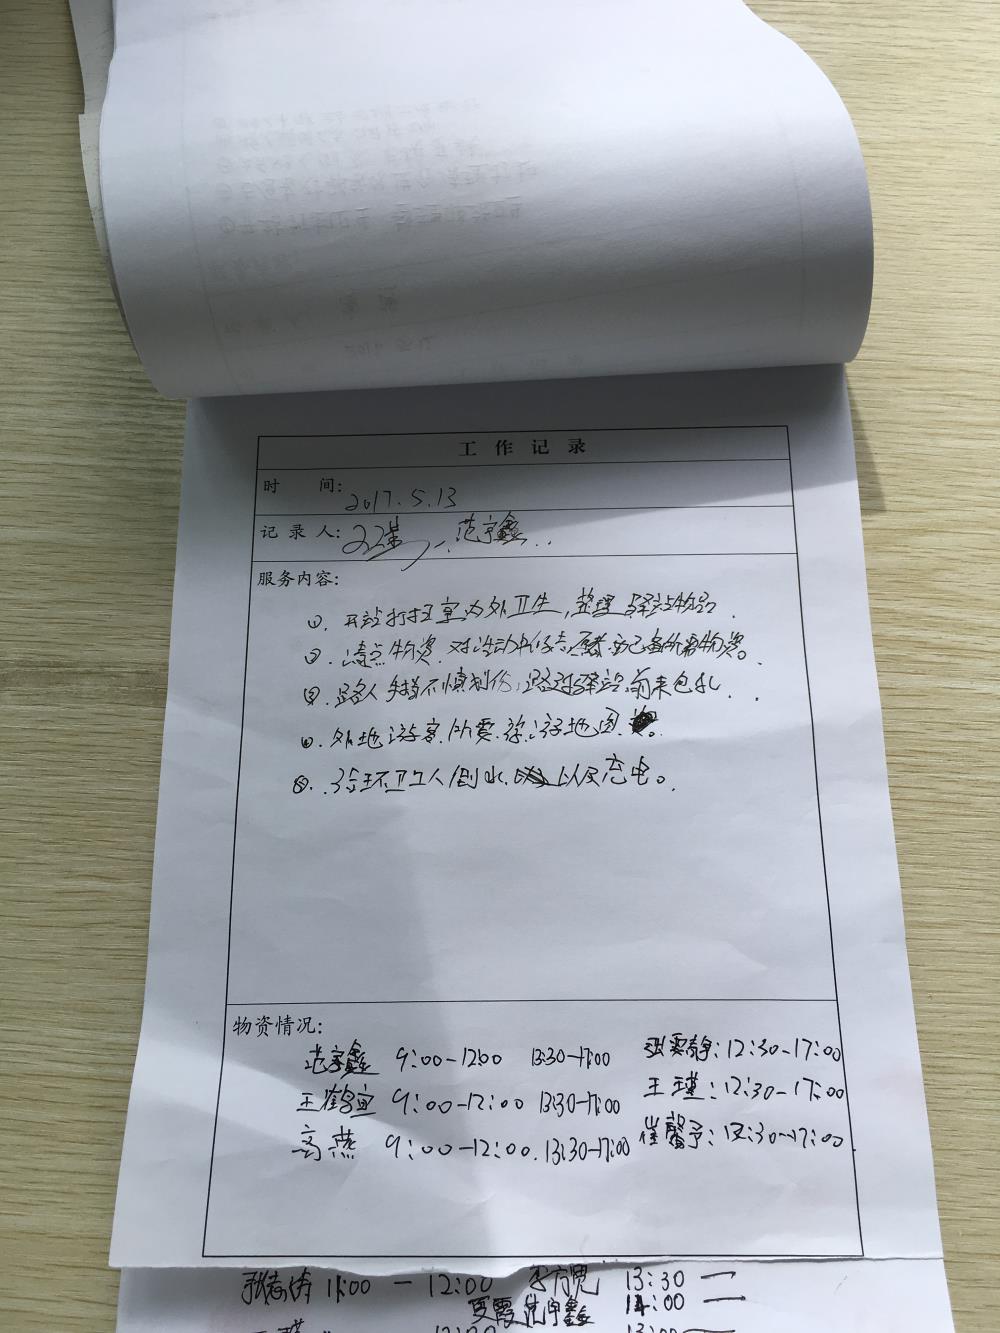 工作记录
时 间: 2017.5.13
记录人: 王瑾 范宇鑫
服务内容:
①. 开站打扫室内外卫生,整理驿站物品.
②. 清点物资.对活动中配备所需物资。
③. 路人手指不慎划伤,路过驿站,前来包扎.
④. 外地游客.所要.旅游地图.
⑤. 给环卫工人倒水.以及充电。
物资情况:
范宇鑫 9:00-12:00 13:30-17:00 张雲静:12:30-17:00
王鹤宜 9:00-12:00 13:30-17:00 王瑾:12:30-17:00
高燕 9:00-12:00. 13:30-17:00 崔馨予:13:30-17:00
11:00 — 12:00 13:30 —
夏霞 范宇鑫 14:00 —